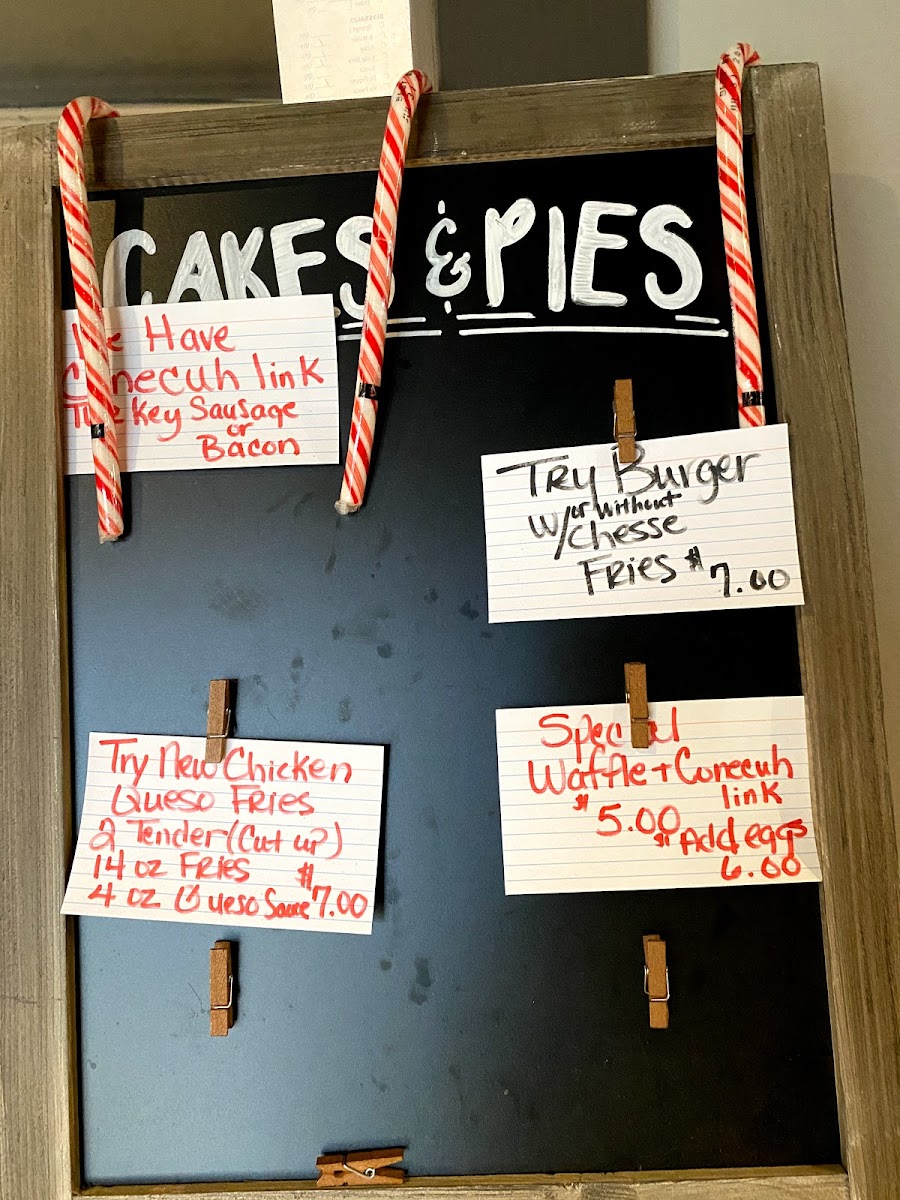 CAKES & PIES
We Have
Conecuh link
Turkey Sausage
or
Bacon
Try Burger
or without
w/chesse
Fries $7.00
Try New Chicken
Queso Fries
2 Tender (Cut up)
14 oz Fries
4 oz Queso Sauce $7.00
Special
Waffle + Conecuh
link
$5.00
$ Add eggs
6.00